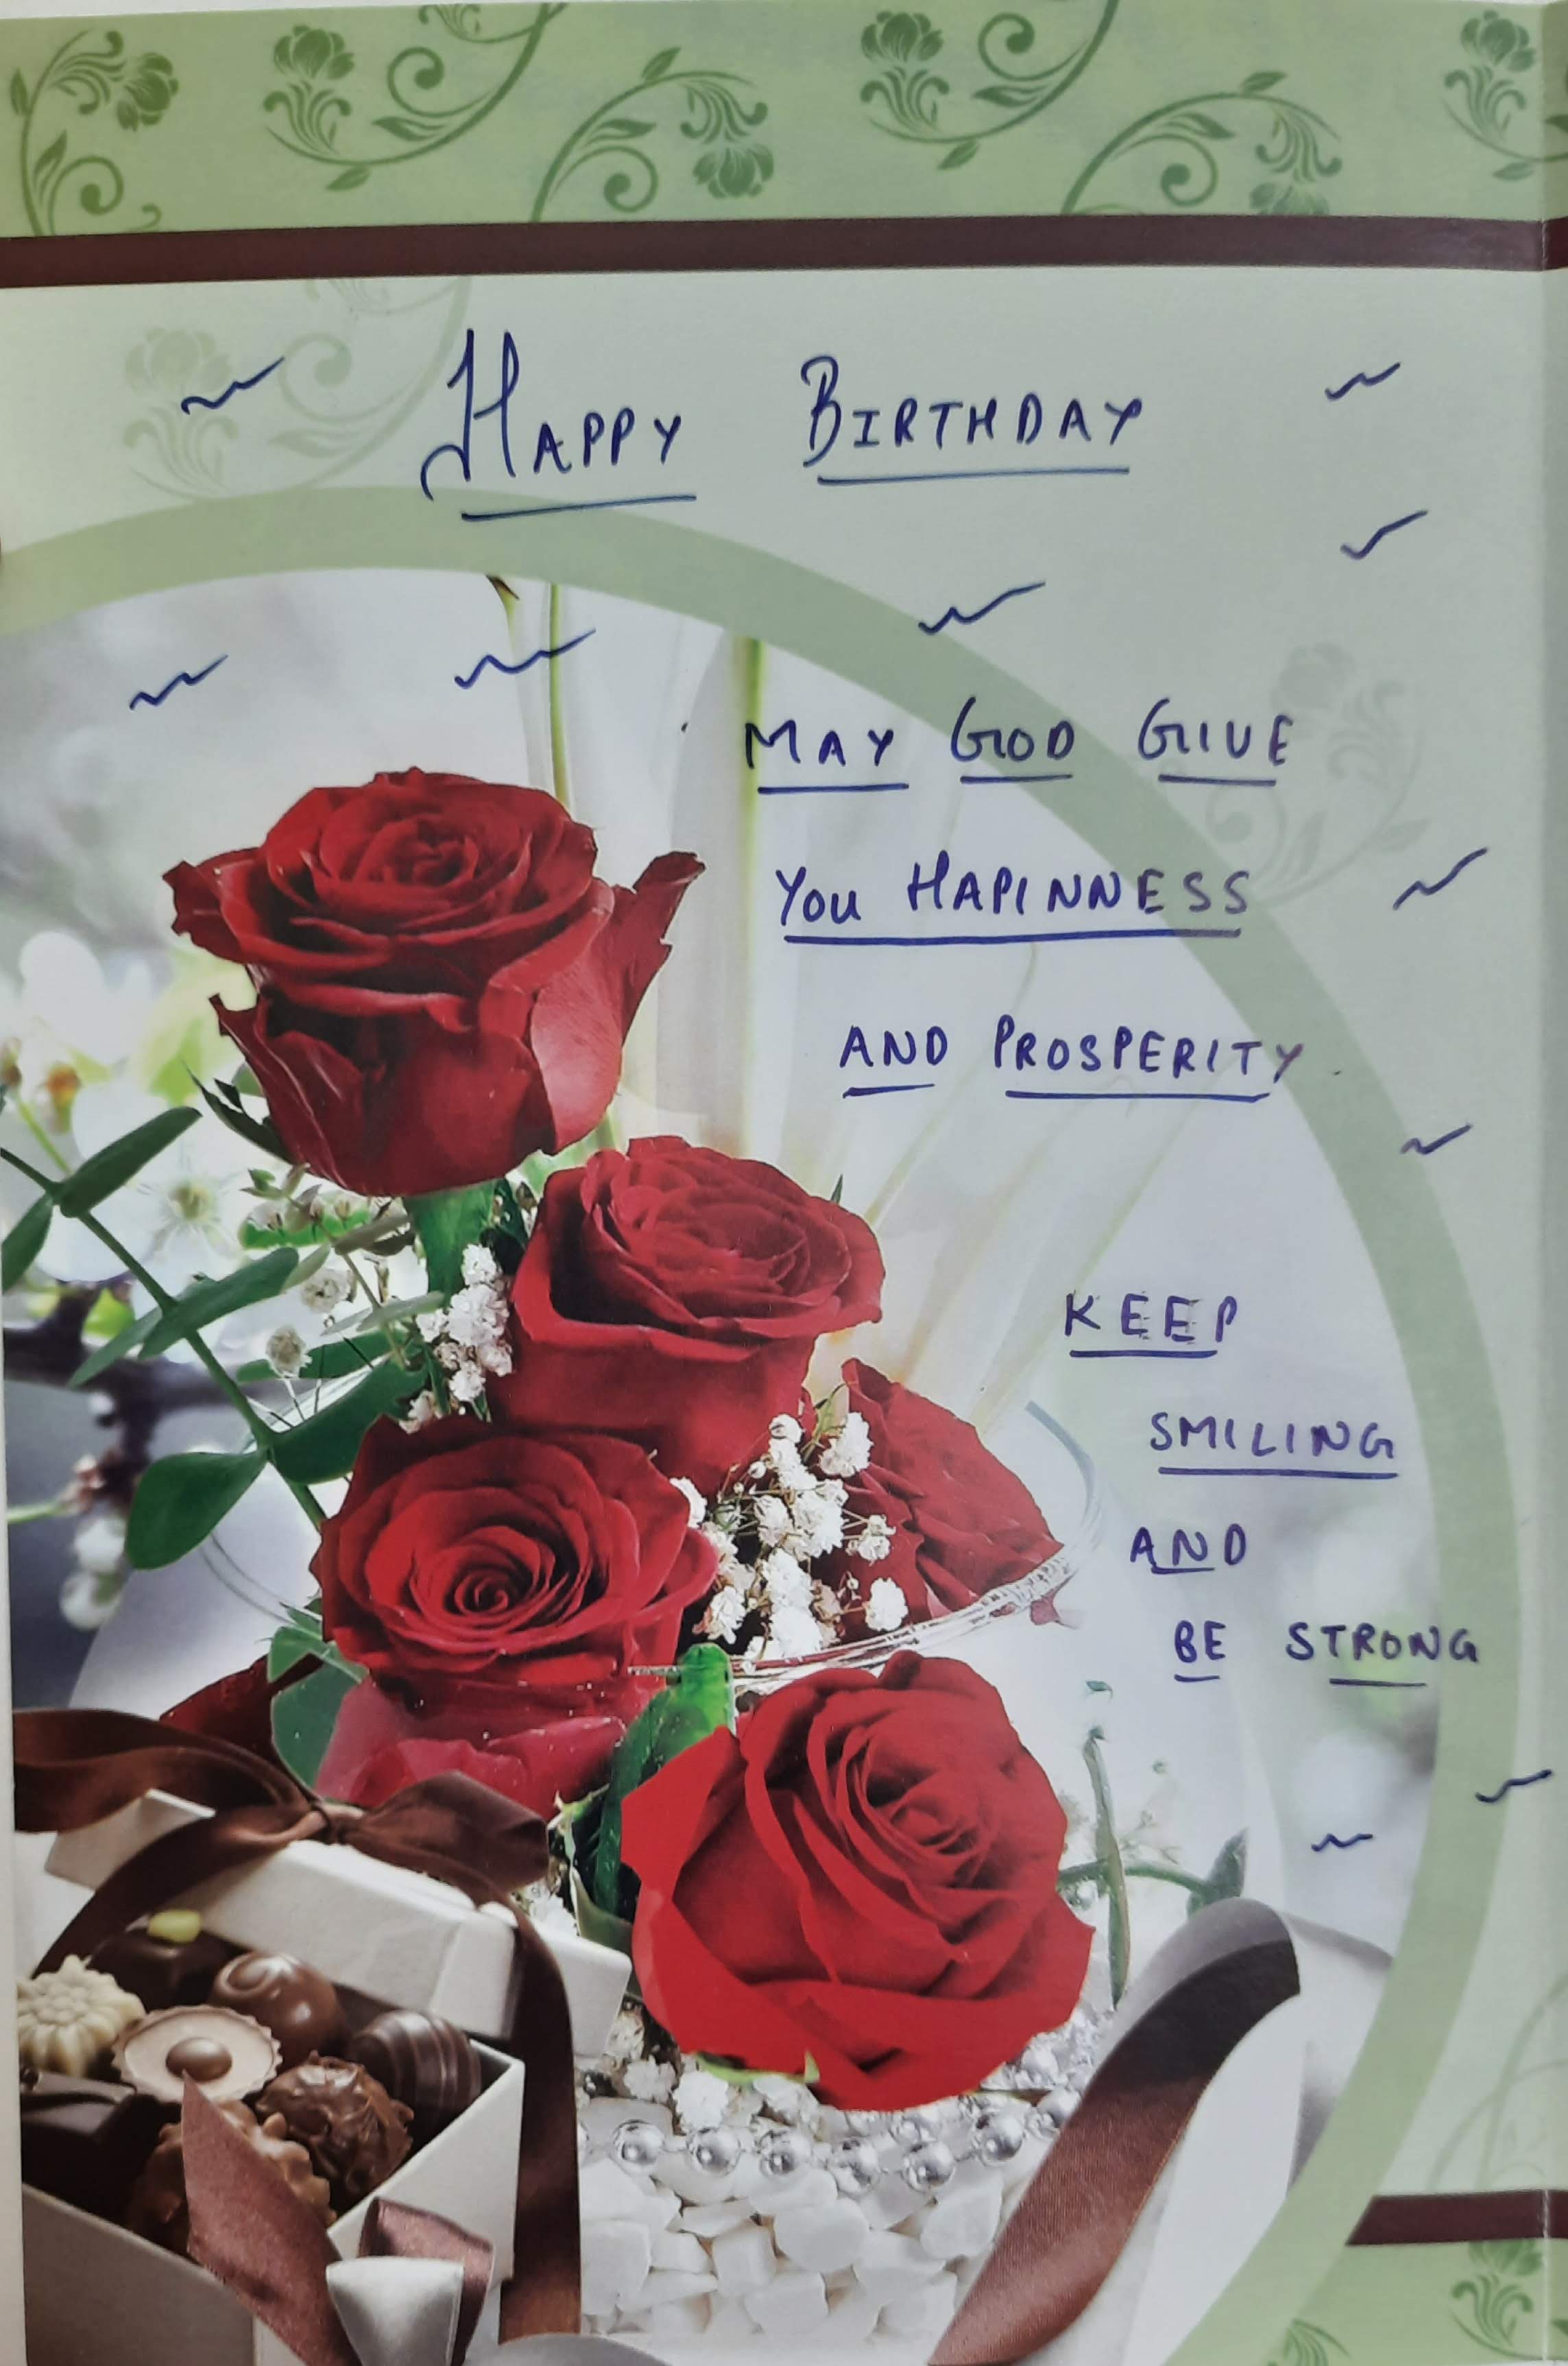 HAPPY BIRTHDAY
MAY GOD GIVE
YOU HAPINNESS
AND PROSPERITY
KEEP
SMILING
AND
BE STRONG